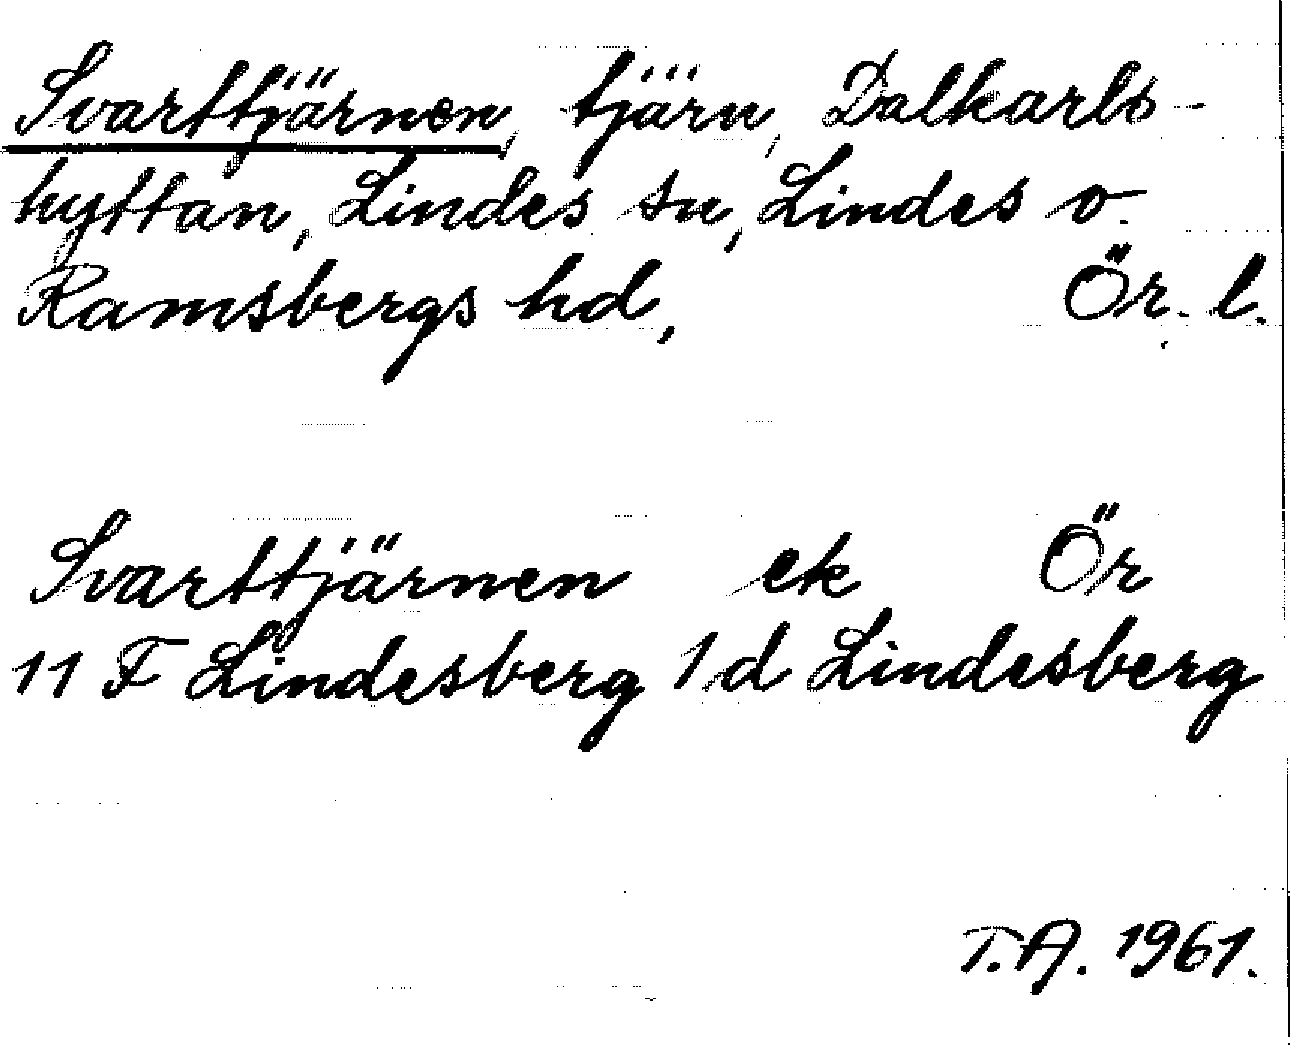 Svarttjärnen, tjärn, Dalkarls-
hyttan, Lindes sn, Lindes o.
Ramsbergs hd, Ör. l.
Svarttjärnen ek Ör
11 F Lindesberg 1 d Lindesberg
T.A. 1961.